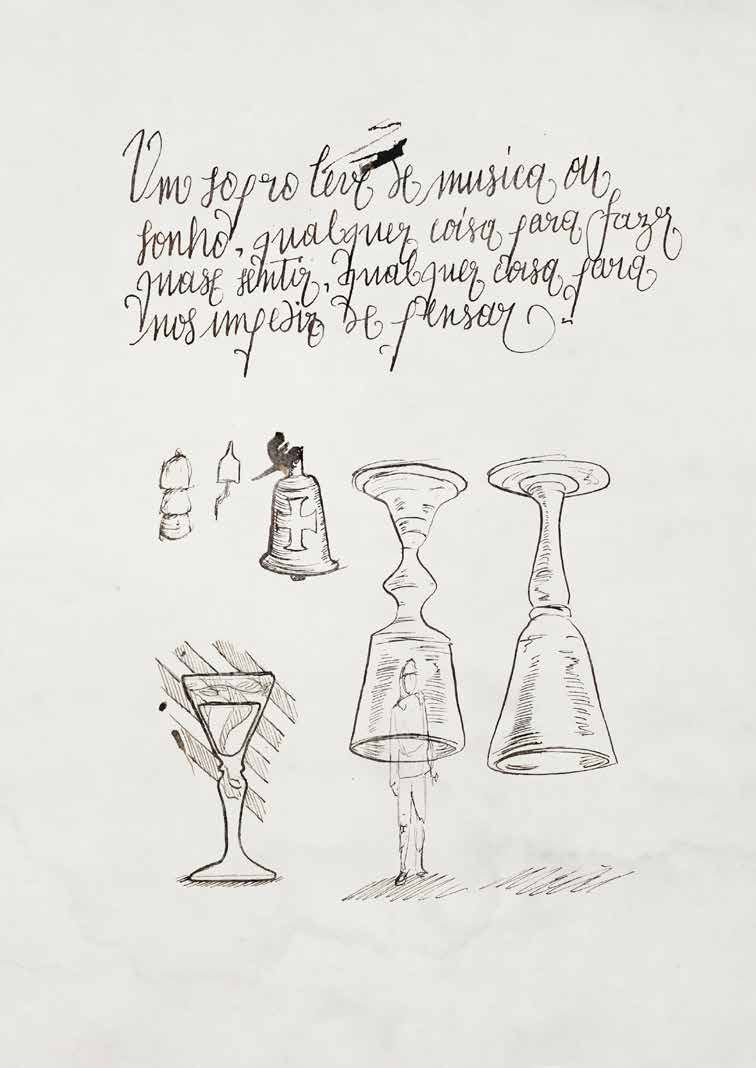 Um sopro leve de musica ou
sonho, qualquer coisa para fazer
quase sentir, qualquer coisa para
nos impedir de pensar.